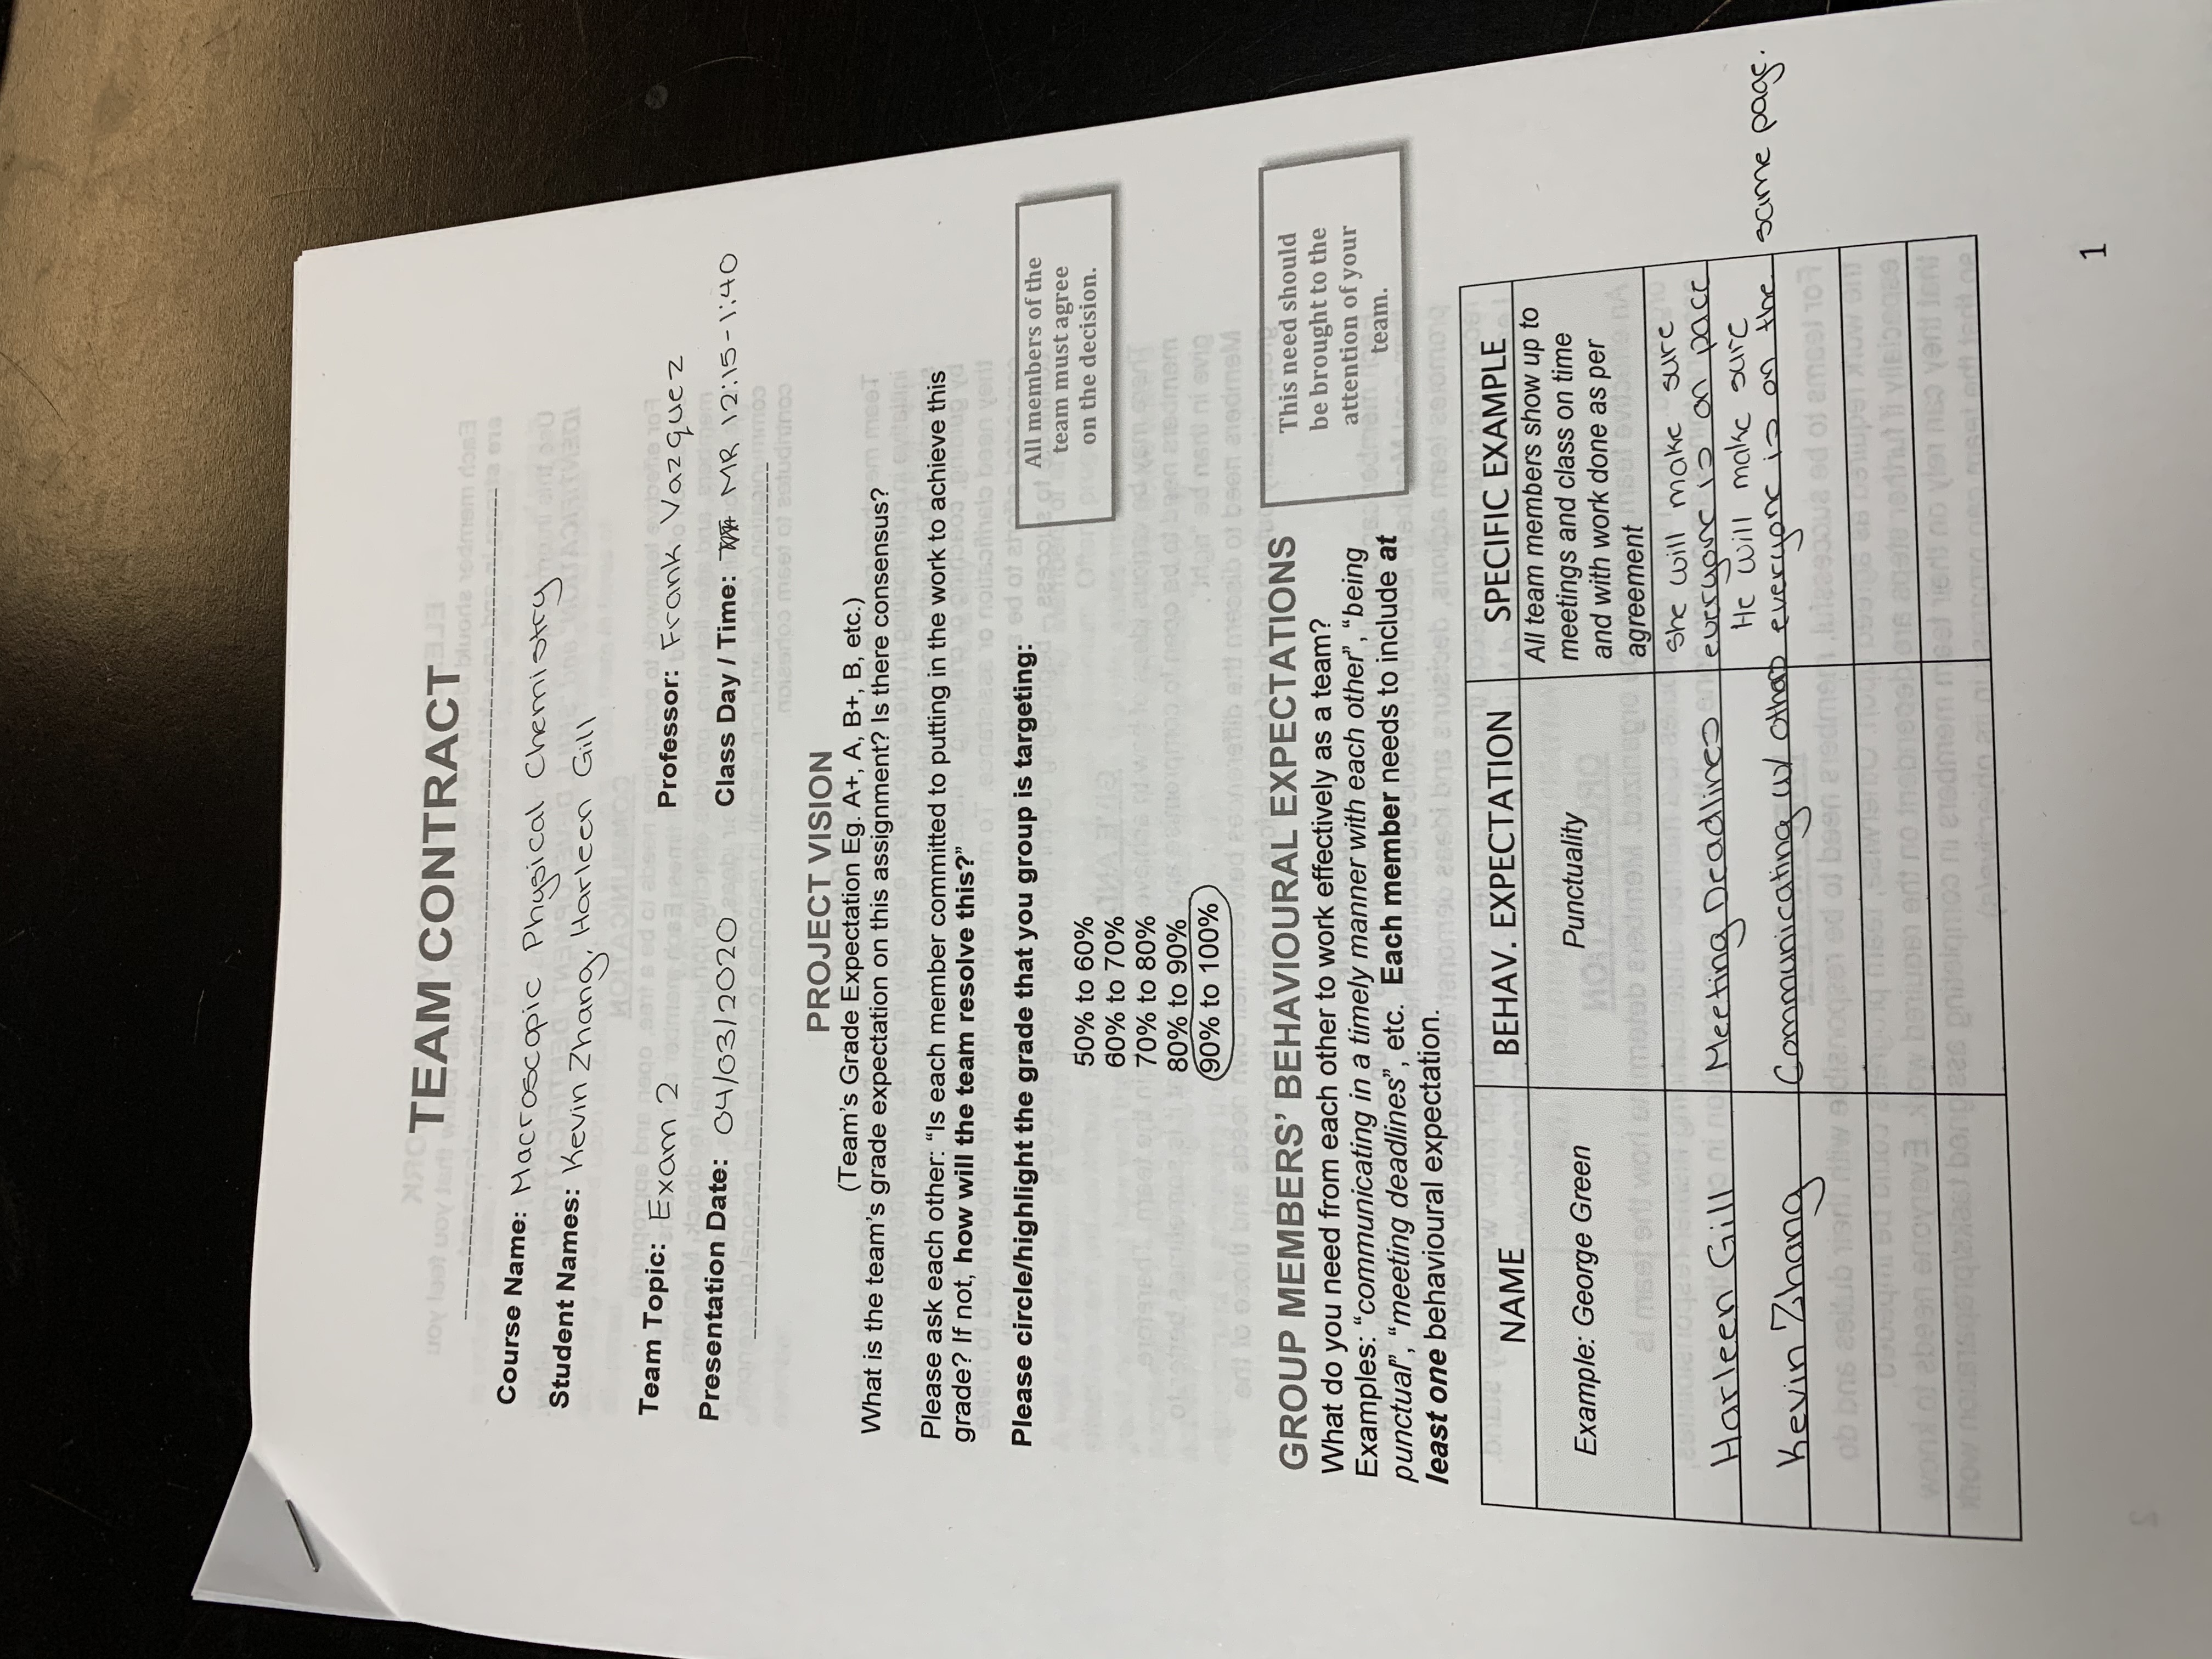 TEAM CONTRACT
Course Name: Macroscopic Physical Chemistry
Student Names: Kevin Zhang, Harleen Gill
Team Topic: Exam 2
Professor: Frank Vazquez
Presentation Date: 04/03/2020
Class Day / Time: MR 12:15-1:40
PROJECT VISION
(Team's Grade Expectation Eg. A+, A, B+, B, etc.)
What is the team's grade expectation on this assignment? Is there consensus?
Please ask each other: “Is each member committed to putting in the work to achieve this
grade? If not, how will the team resolve this?”
Please circle/highlight the grade that you group is targeting:
All members of the
team must agree
on the decision.
50% to 60%
60% to 70%
70% to 80%
80% to 90%
90% to 100%
GROUP MEMBERS' BEHAVIOURAL EXPECTATIONS
What do you need from each other to work effectively as a team?
Examples: “communicating in a timely manner with each other”, “being
punctual”, “meeting deadlines”, etc. Each member needs to include at
least one behavioural expectation.
This need should
be brought to the
attention of your
team.
NAME
BEHAV. EXPECTATION
SPECIFIC EXAMPLE
Example: George Green
Punctuality
All team members show up to
meetings and class on time
and with work done as per
agreement
Harleen Gill
Meeting Deadlines
She will make sure
everyone is on pace
Kevin Zhang
Communicating w/ others
He will make sure
everyone is on the same page.
1